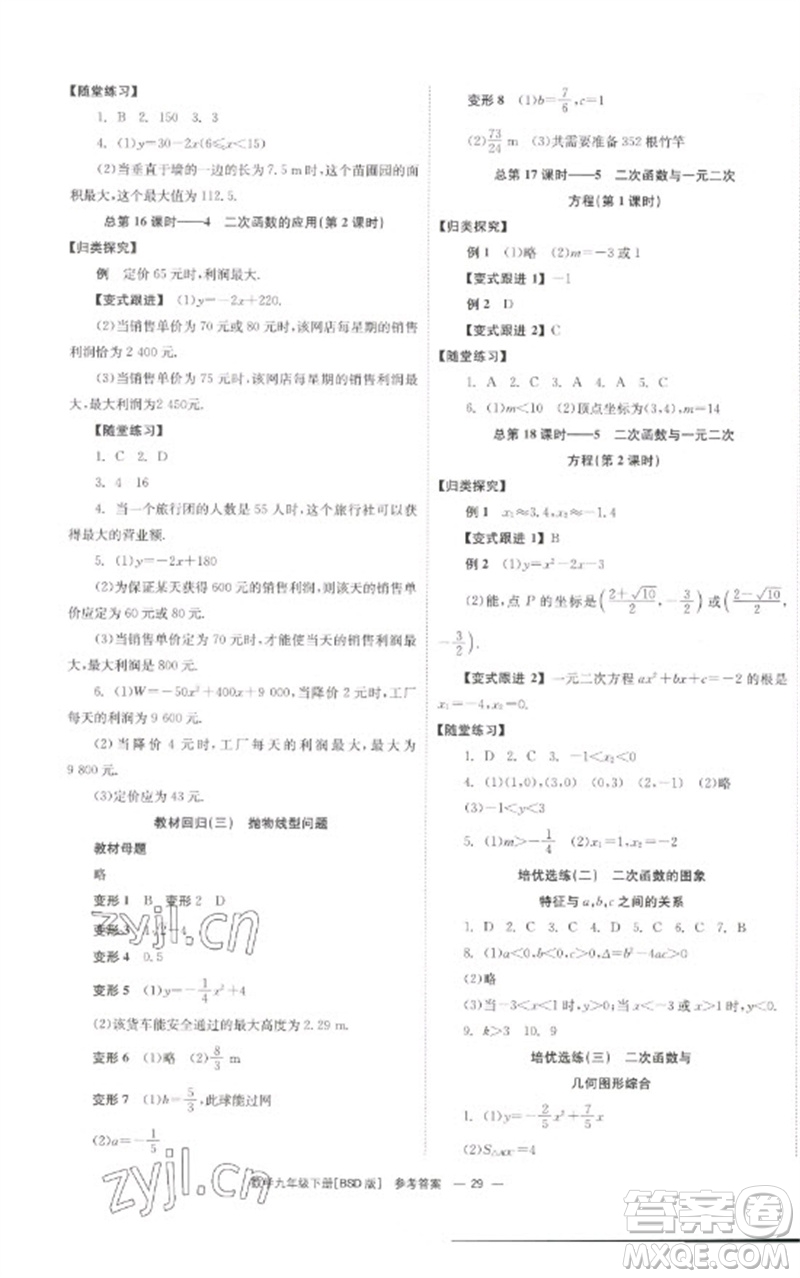 【随堂练习】
1. B  2. 150  3. 3
4. (1)y=30-2x(6≤x<15)
(2)当垂直于墙的一边的长为 7.5 m 时，这个苗圃园的面
积最大，这个最大值为 112.5.
总第 16 课时——4　二次函数的应用(第 2 课时)
【归类探究】
例　定价 65 元时，利润最大.
【变式跟进】 (1)y=-2x+220.
(2)当销售单价为 70 元或 80 元时，该网店每星期的销售
利润恰为 2 400 元.
(3)当销售单价为 75 元时，该网店每星期的销售利润最
大，最大利润为2 450元.
【随堂练习】
1. C  2. D
3. 4  16
4. 当一个旅行团的人数是 55 人时，这个旅行社可以获
得最大的营业额.
5. (1)y=-2x+180
(2)为保证某天获得 600 元的销售利润，则该天的销售单
价应定为 60 元或 80 元.
(3)当销售单价定为 70 元时，才能使当天的销售利润最
大，最大利润是 800 元.
6. (1)W=-50x²+400x+9 000，当降价 2 元时，工厂
每天的利润为 9 600 元.
(2)当降价 4 元时，工厂每天的利润最大，最大为
9 800 元.
(3)定价应为 43 元.
教材回归(三)　抛物线型问题
教材母题
略
变形 1　B　变形 2　D
变形 3
变形 4　0.5
变形 5　(1)y=-1/4x²+4
(2)该货车能安全通过的最大高度为 2.29 m.
变形 6　(1)略　(2)8/3 m
变形 7　(1)h=5/3，此球能过网
(2)a=-1/5
变形 8　(1)b=7/6，c=1
(2)73/24 m　(3)共需要准备 352 根竹竿
总第 17 课时——5　二次函数与一元二次
方程(第 1 课时)
【归类探究】
例 1　(1)略　(2)m=-3 或 1
【变式跟进 1】-1
例 2　D
【变式跟进 2】C
【随堂练习】
1. A  2. C  3. A  4. A  5. C
6. (1)m<10　(2)顶点坐标为(3,4)，m=14
总第 18 课时——5　二次函数与一元二次
方程(第 2 课时)
【归类探究】
例 1　x₁≈3.4，x₂≈-1.4
【变式跟进 1】B
例 2　(1)y=x²-2x-3
(2)能，点 P 的坐标是((2+√10)/2，-3/2)或((2-√10)/2，
-3/2).
【变式跟进 2】 一元二次方程 ax²+bx+c=-2 的根是
x₁=-4，x₂=0.
【随堂练习】
1. D  2. C  3. -1<x₂<0
4. (1)(1,0)，(3,0)　(0,3)　(2,-1)　(2)略
(3)-1<y<3
5. (1)m>-1/4　(2)x₁=1，x₂=-2
培优选练(二)　二次函数的图象
特征与 a,b,c 之间的关系
1. D  2. D  3. C  4. C  5. D  6. C  7. C
8. (1)a<0,b<0,c>0,Δ=b²-4ac>0
(2)略
(3)当-3<x<1 时，y>0；当 x<-3 或 x>1 时，y<0.
9. k>3  10. 9
培优选练(三)　二次函数与
几何图形综合
1. (1)y=-2/5x²+7/5x
(2)S△AOC=4
数学九年级下册[BSD 版]　参考答案　— 29 —
zyjl.cn
zyjl.cn
答案卷
MXQE.COM